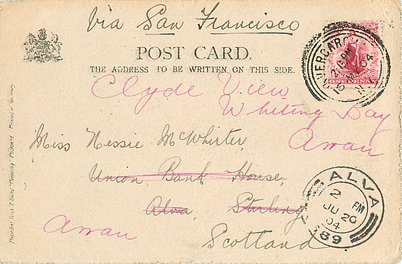 Via San Francisco
POST CARD.
THE ADDRESS TO BE WRITTEN ON THIS SIDE.
INVERCARGILL
2 15 PM
04
N.Z
Clyde View
Whiting Bay
Arran
Miss Nessie McWhirter,
Union Bank House,
Alva, Stirling
Scotland
Arran
ALVA
2 PM
JU 20
04
389